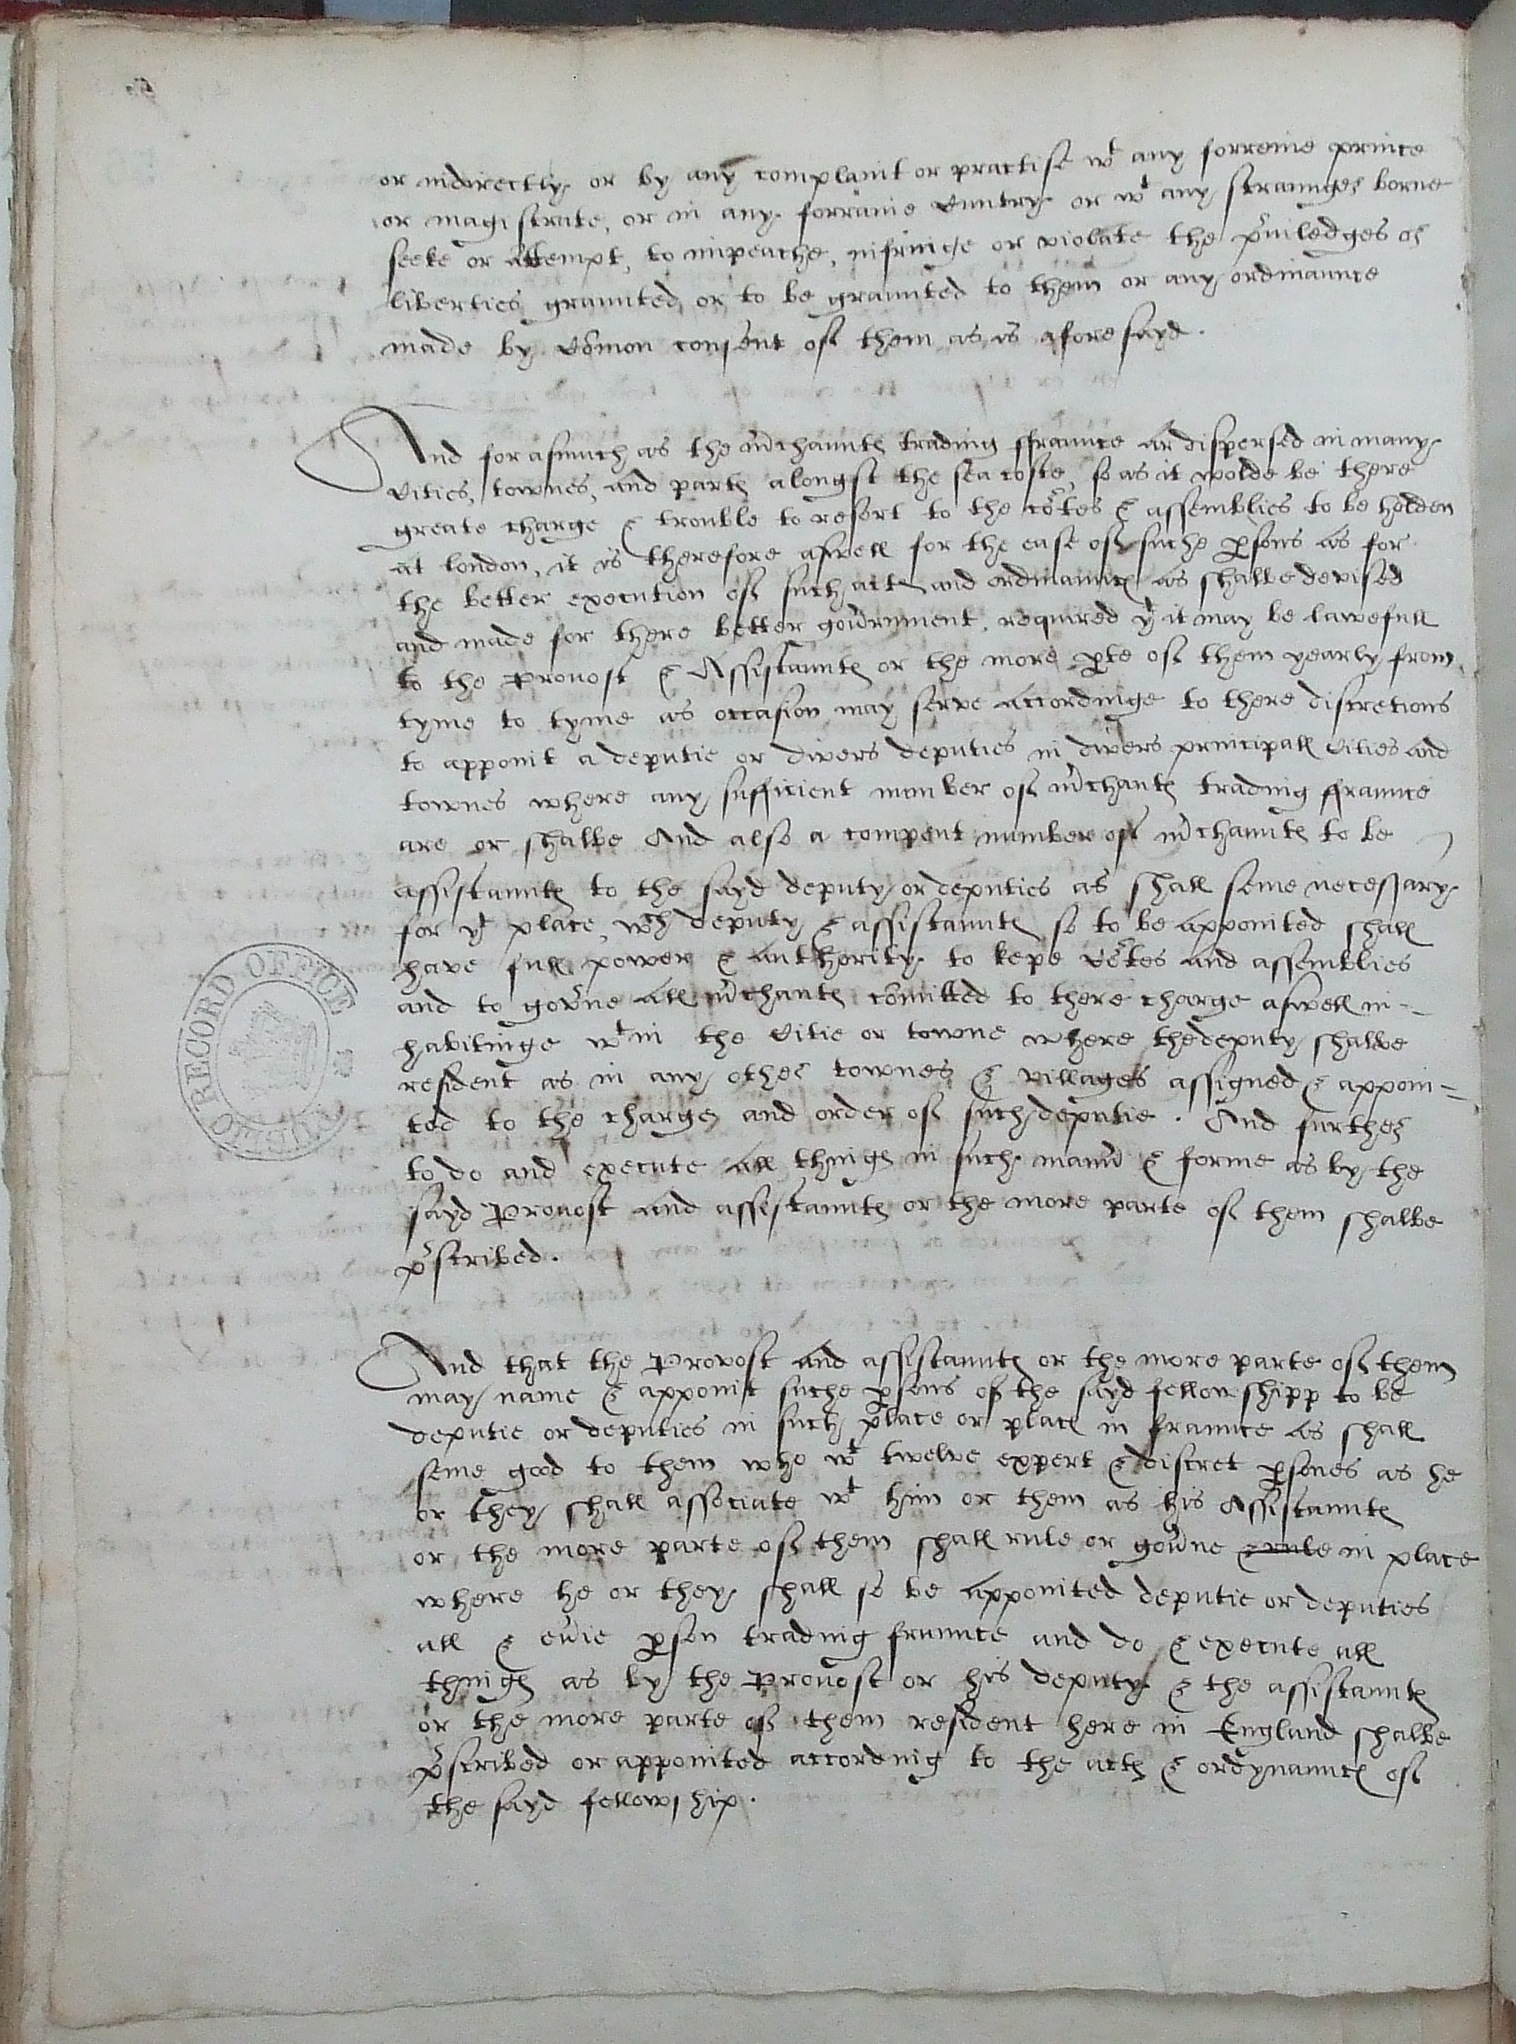 or indirectly or by any complaint or practise wt any forreine prince
or magistrate, or in any forraine Cuntry or wt any straunger borne
seeke or attempt, to impeache, infringe or violate the priuledges or
liberties graunted or to be graunted to them or any ordinaunce
made by comon consent of them as is aforesayd.
And for asmuch as the mchauntes trading ffraunce ar dispersed in many
Cities, townes, and partes alongst the sea coste, so as it wolde be there
greate charge & trouble to resort to the cortes & assemblies to be holden
at london, it is therefore aswell for the ease of suche psons as for
the better execution of such actes and ordinaunces as shalbe devised
and made for there better gouernment, required yt it may be lawefull
to the Prouost & Assistauntes or the more pte of them yearly from
tyme to tyme as occasion may serve accordinge to there discretions
to appoint a deputie or divers deputies in divers principall Cities and
townes where any sufficient number of mchantes trading ffraunce
are or shalbe And also a compent number of mchauntes to be
assistauntes to the sayd deputy or deputies as shall seme necessary
for yt place, wch deputy & assistauntes so to be appointed shall
have full power & authority to kepe Cortes and assemblies
and to goune all mchantes comitted to there charge aswell in-
habitinge wt in the Citie or towne where the deputy shalbe
resident as in any other townes & villages assigned & appoin-
ted to the charges and order of such deputie. And further
to do and execute all thinges in such maner & forme as by the
sayd Prouost and assistauntes or the more parte of them shalbe
pscribed.
And that the Provost and assistauntes or the more parte of them
may name & appoint suche psons of the sayd fellowshipp to be
deputie or deputies in such place or places in fraunce as shall
seme good to them who wt twelve expert & discret psones as he
or they shall associate wt him or them as his Assistauntes
or the more parte of them shall rule or goune & rule in place
where he or they shall so be appointed deputie or deputies
all & euie pson trading fraunce and do & execute all
thinges as by the Prouost or his deputy & the assistauntes
or the more parte of them resident here in England shalbe
pscribed or appointed according to the actes & ordynaunces of
the sayd fellowship.
PUBLIC RECORD OFFICE